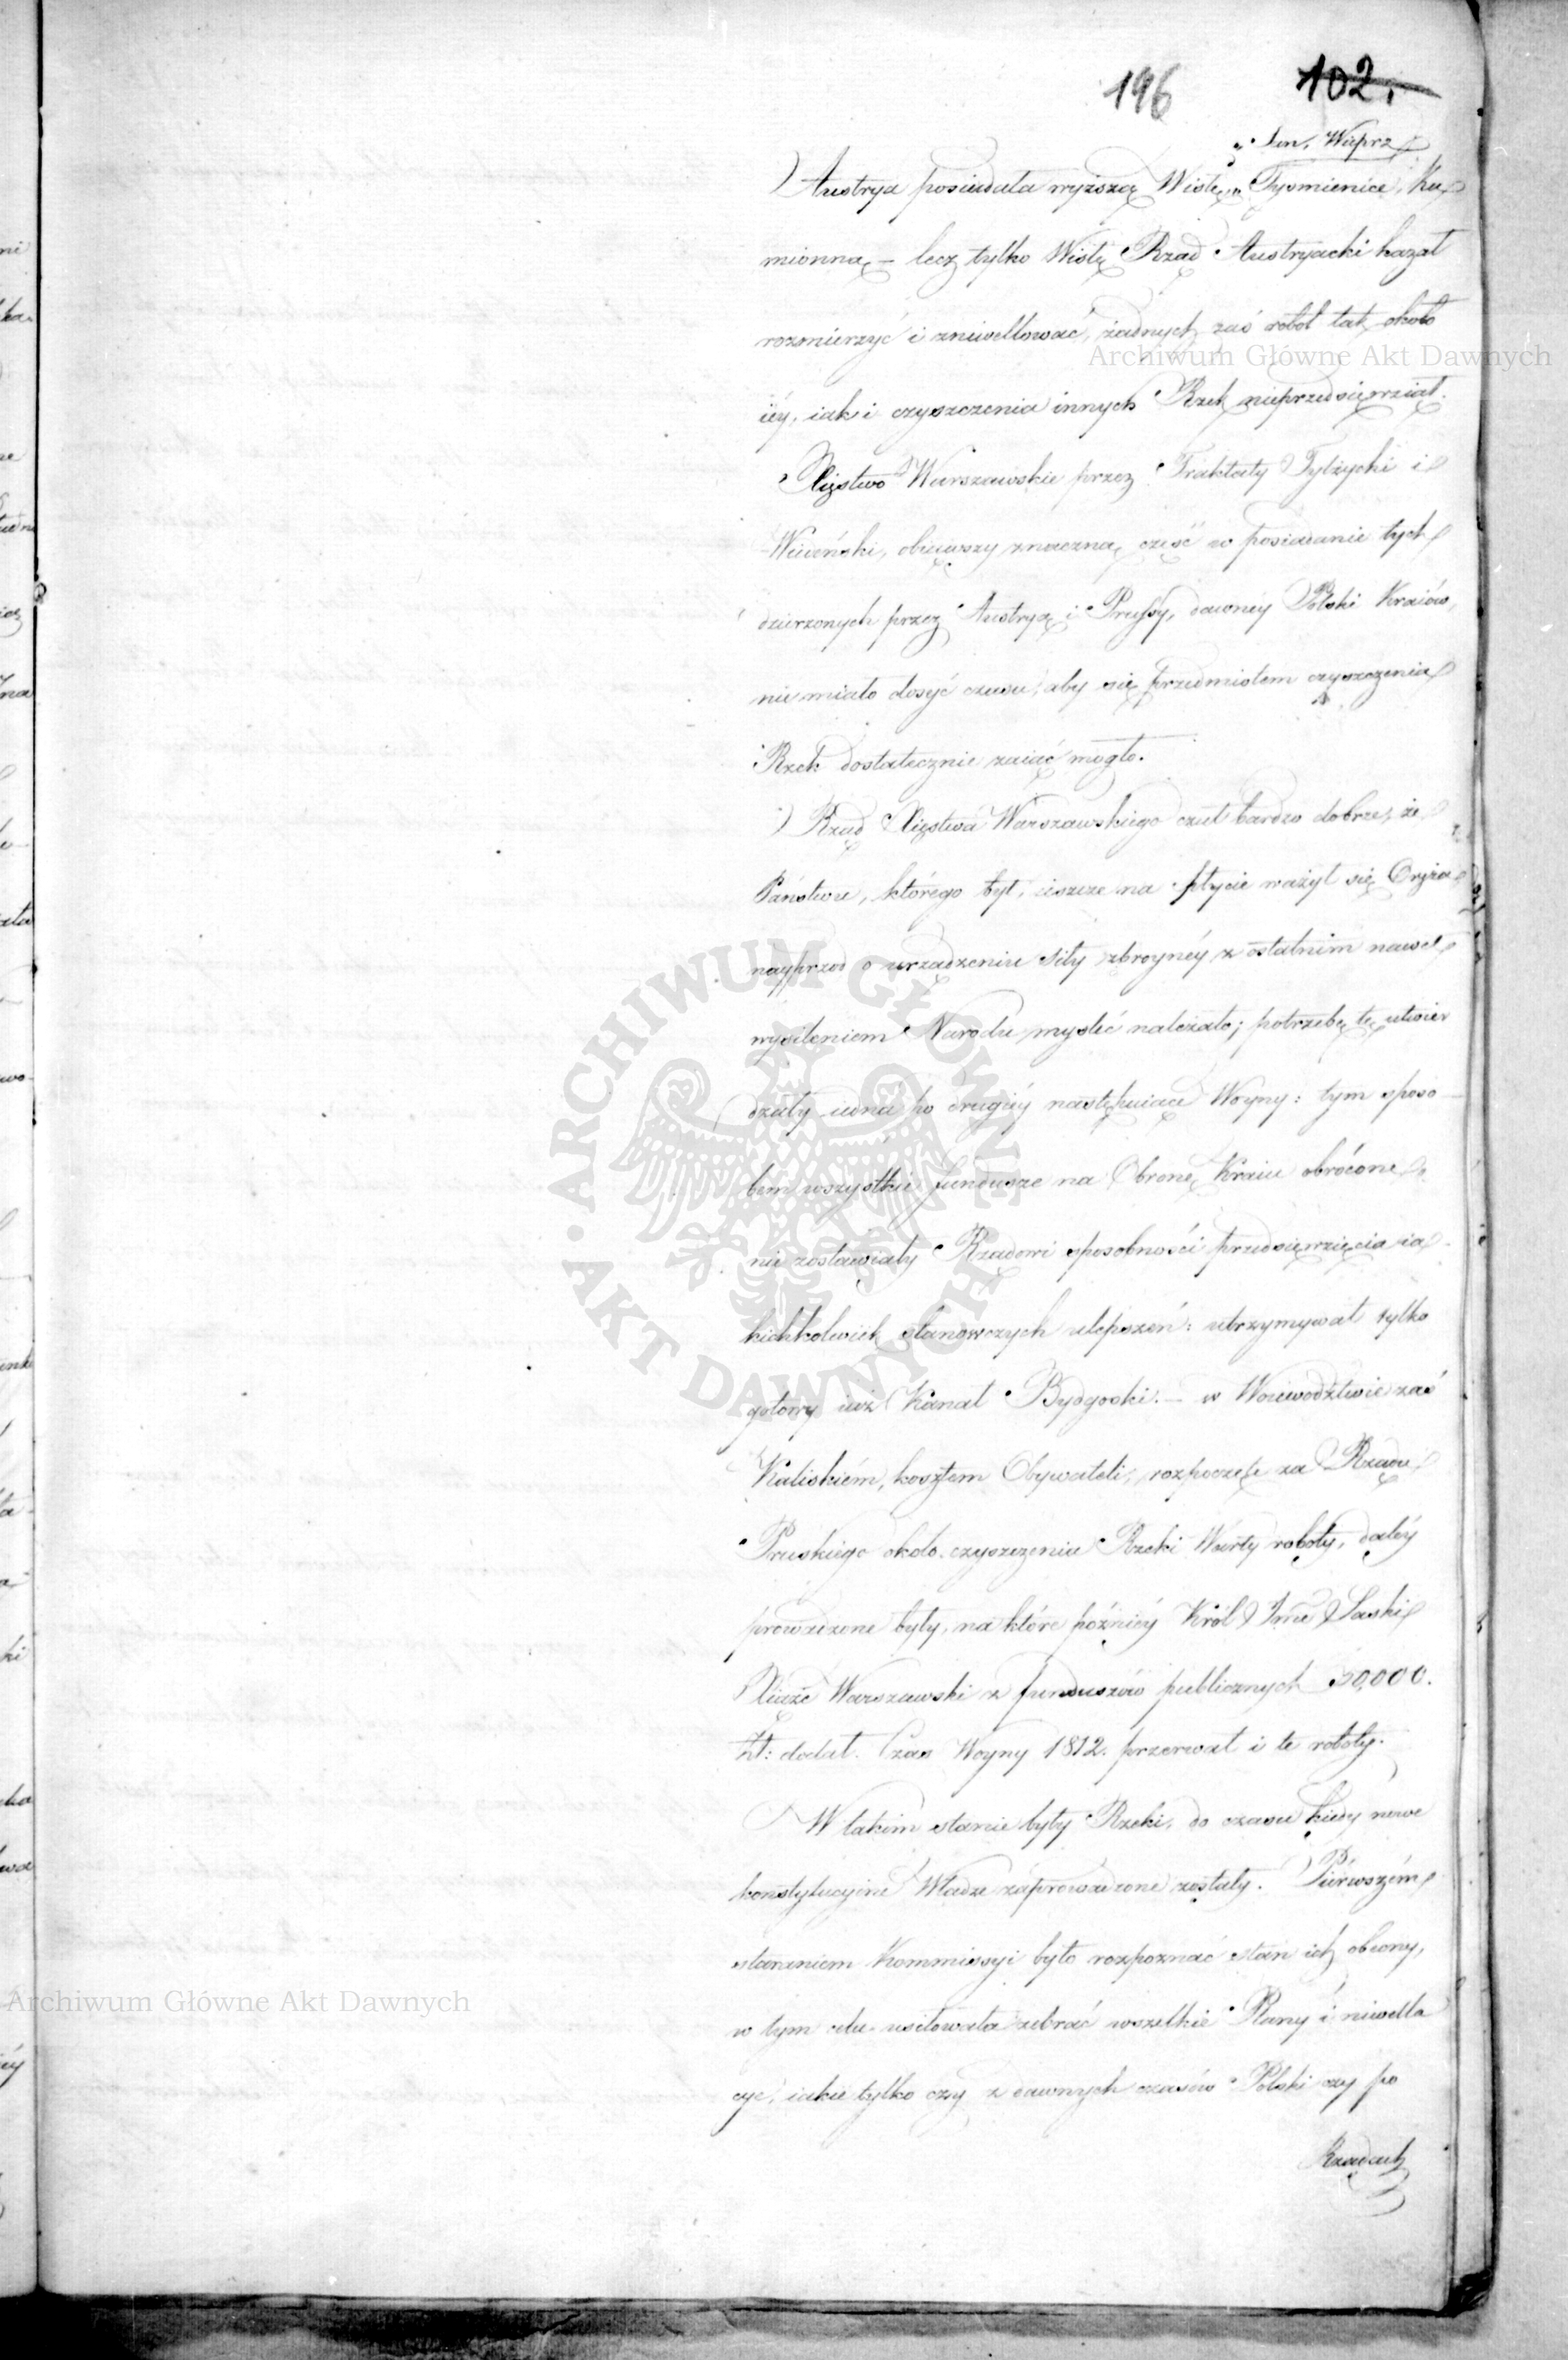 196 102.
San, Wieprz
Austrya posiadała wyższą Wisłę, Tyśmienicę, Ka
mionnę – lecz tylko Wisłę Rząd Austryacki kazał
rozmierzyć i zniwellować, żadnych zaś robót tak około
iéy, iak i czyszczenia innych Rzek nieprzedsięwziął.
Xięstwo Warszawskie przez Traktaty Tylżycki i
Wiedeński, obiąwszy znaczną część w posiadanie tych
dzierzonych przez Austryą i Prussy, dawnéy Polski Kraiów,
nie miało dosyć czasu, aby się przedmiotem czyszczenia
Rzek dostatecznie zaiąć mogło.
Rząd Xięstwa Warszawskiego czuł bardzo dobrze, że
Państwu, którego byt ieszcze na się ważył się
nayprzod o urządzeniu siły zbroynéy z ostatnim nawet
wysileniem Narodu mysleć należało; potrzebę tę utwier
dzały iedna po drugiéy następuiące Woyny: tym sposo
bem wszystkie fundusze na Obronę Kraiu obrócone
nie zostawiały Rządowi sposobności przedsięwzięcia ia
kichkolwiek stanowczych ulepszeń: utrzymywał tylko
gotowy iuż Kanał Bydgoski. – w Woiewodztwie zaś
Kaliskiém, kosztem Obywateli, rozpoczęte za Rządu
Pruskiego około czyszczenia Rzeki Warty roboty, daléy
prowadzone były, na które późniéy Król Jmć Saski
Xiąże Warszawski z funduszów publicznych 50,000.
Zł: dodał. Czas Woyny 1812. przerwał i te roboty.
W takim stanie były Rzeki, do czasu kiedy nowe
konstytucyine Władze zaprowadzone zostały. Piérwszém
staraniem Kommissyi było rozpoznać stan ich obecny,
w tym celu usiłowała zebrać wszelkie Plany i niwella
cye, iakie tylko czy z dawnych czasów Polski czy po
Rządach
Archiwum Główne Akt Dawnych
Archiwum Główne Akt Dawnych
ARCHIWUM GŁÓWNE AKT DAWNYCH